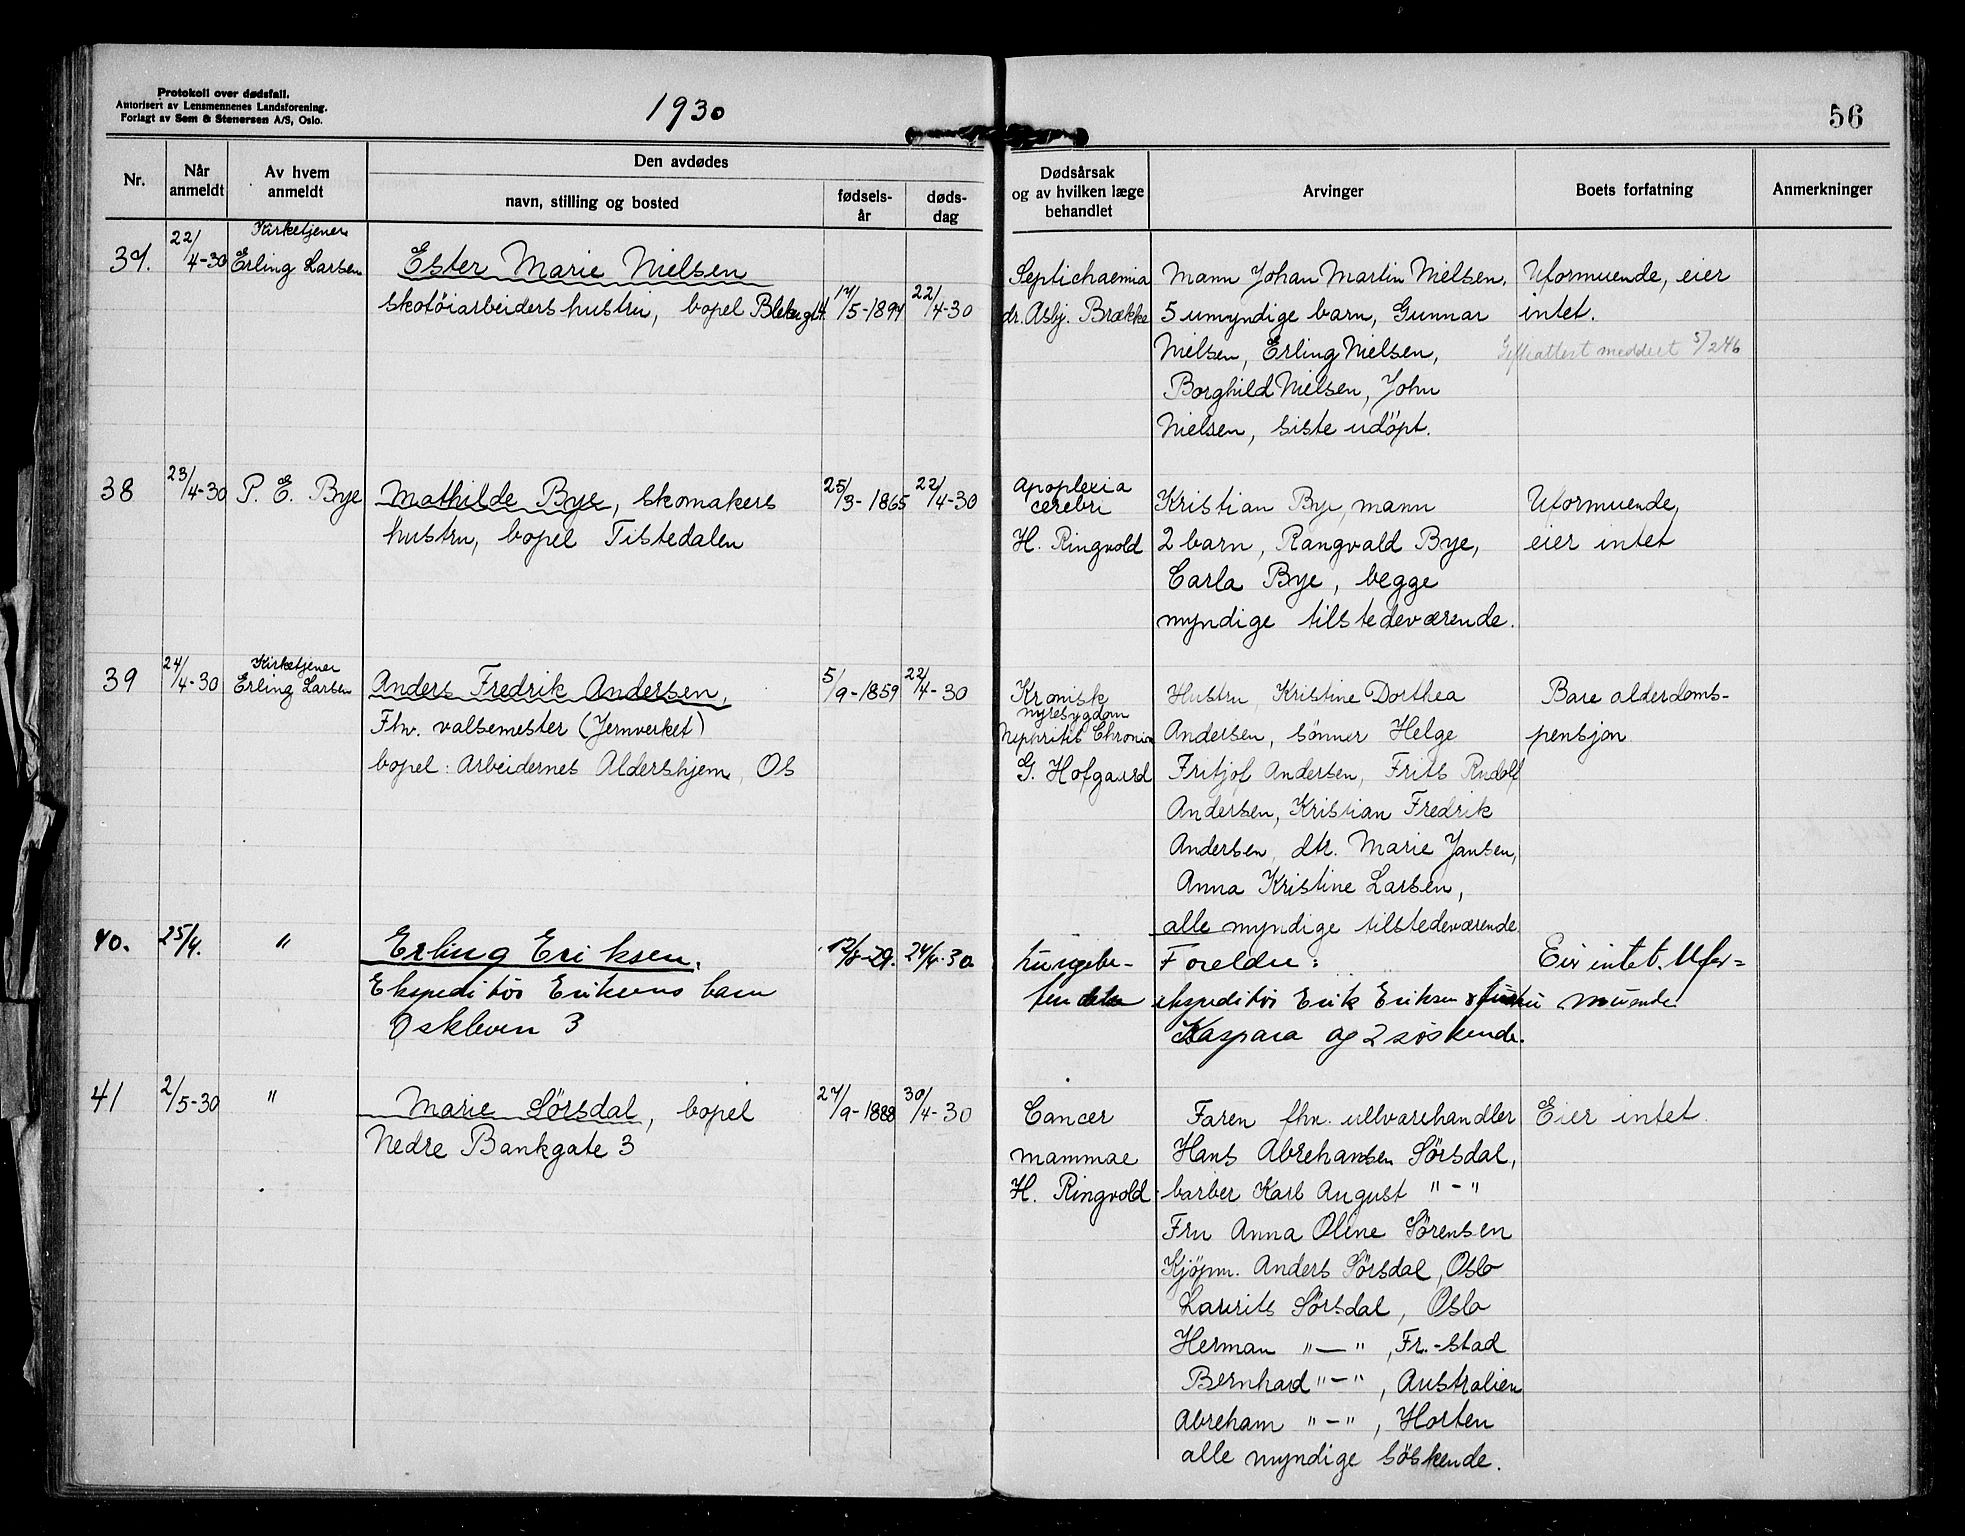 Protokoll over dødsfall.
Autorisert av Lensmennenes Landsforening.
Forlagt av Sem & Stenersen A/S, Oslo.
1930
56
Nr.
Når anmeldt
Av hvem anmeldt
Den avdødes
navn, stilling og bosted
fødsels-år
døds-dag
Dødsårsak
og av hvilken læge
behandlet
Arvinger
Boets forfatning
Anmerkninger
37.
22/4-30
Kirketjener
Erling Larsen
Ester Marie Nielsen
skotöiarbeiders hustru, bopel
17/5-1894
22/4-30
Septichaemia
dr. Asbj. Brække
Mann Johan Martin Nielsen.
5 umyndige barn, Gunnar
Nielsen, Erling Nielsen,
Borghild Nielsen, John
Nielsen, siste udöpt.
Uformuende, eier
intet.
meddelt
38
23/4-30
P. E. Bye
Mathilde Bye, skomakers
hustru, bopel Tistedalen
25/3-1865
22/4-30
Apoplexia
cerebri
H. Ringvold
Kristian Bye, mann
2 barn, Rangvald Bye,
Carla Bye, begge
myndige tilstedeværende.
Uformuende,
eier intet
39
24/4-30
Kirketjener
Erling Larsen
Anders Fredrik Andersen,
Fhv. valsemester (Jernverket)
bopel: Arbeidernes Aldershjem, Os
5/9-1859
22/4-30
Kronisk
nyresygdom
Nephritis Chronica
G. Hofgaard
Hustru Kristine Dorthea
Andersen, sönner Helge
Fritjof Andersen, Frits Rudolf
Andersen, Kristian Fredrik
Andersen, dtr. Marie Jansen,
Anna Kristine Larsen,
alle myndige tilstedeværende.
Bare alderdoms-
pensjon
40.
25/4.
"
Erling Eriksen.
Ekspeditör Eriksens barn
Oskleven 3
12/8-29.
24/4-30
Lungebe-
Foreldre:
ekspeditör Erik Eriksen & hustru
Kaspara og 2 söskende.
Eier intet. Ufor=
muende
41
2/5-30
"
Marie Sörsdal, bopel
Nedre Bankgate 3
27/9-1888
30/4-30
Cancer
mammae
H. Ringvold
Faren fhv. ullvarehandler
Hans Abrehamsen Sörsdal,
barber Karl August "-"
Fru Anna Oline Sörensen
Kjöpm. Anders Sörsdal, Oslo
Laurits Sörsdal, Oslo
Herman "—", Fr.-stad
Bernhard "-", Australien
Abreham "-", Horten
alle myndige söskende.
Eier intet.